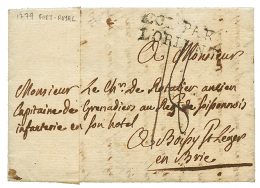 1779 PORT-ROYAL
COL. PAR
LORIENT
A Monsieur
Monsieur Le Ch.er de Rotalier ancien
Capitaine de Grenadiers au Reg.t de Soissonnois
infanterie en son hotel
A Boissy St Léger
en Brie